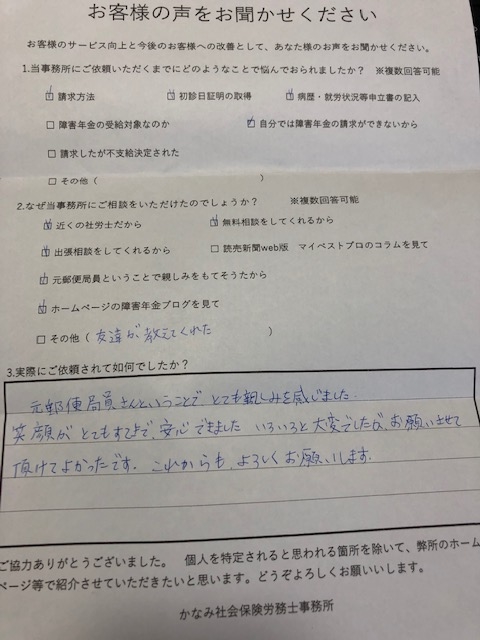 お客様の声をお聞かせください
お客様のサービス向上と今後のお客様への改善として、あなた様のお声をお聞かせください。
1.当事務所にご依頼いただくまでにどのようなことで悩んでおられましたか？ ※複数回答可能
☑ 請求方法 ☑ 初診日証明の取得 ☑ 病歴・就労状況等申立書の記入
☐ 障害年金の受給対象なのか ☑ 自分では障害年金の請求ができないから
☐ 請求したが不支給決定された
☐ その他（ ）
2.なぜ当事務所にご相談をいただけたのでしょうか？ ※複数回答可能
☑ 近くの社労士だから ☑ 無料相談をしてくれるから
☑ 出張相談をしてくれるから ☐ 読売新聞web版 マイベストプロのコラムを見て
☑ 元郵便局員ということで親しみをもてそうだから
☑ ホームページの障害年金ブログを見て
☐ その他（ 友達が教えてくれた ）
3.実際にご依頼されて如何でしたか？
元郵便局員さんということで とても親しみを感じました.
笑顔が とてもすてきで、安心できました いろいろと大変でしたが、お願いさせて
頂けてよかったです. これからも、よろしくお願いします.
ご協力ありがとうございました。 個人を特定されると思われる箇所を除いて、弊所のホーム
ページ等で紹介させていただきたいと思います。どうぞよろしくお願いいします。
かなみ社会保険労務士事務所